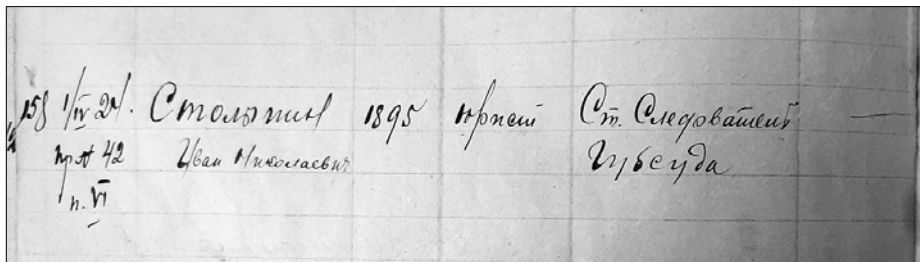 158 1/IV 24. Столыпин 1895 юрист Ст. Следователь —
пр № 42 Иван Николаевич Губсуда
п. VI